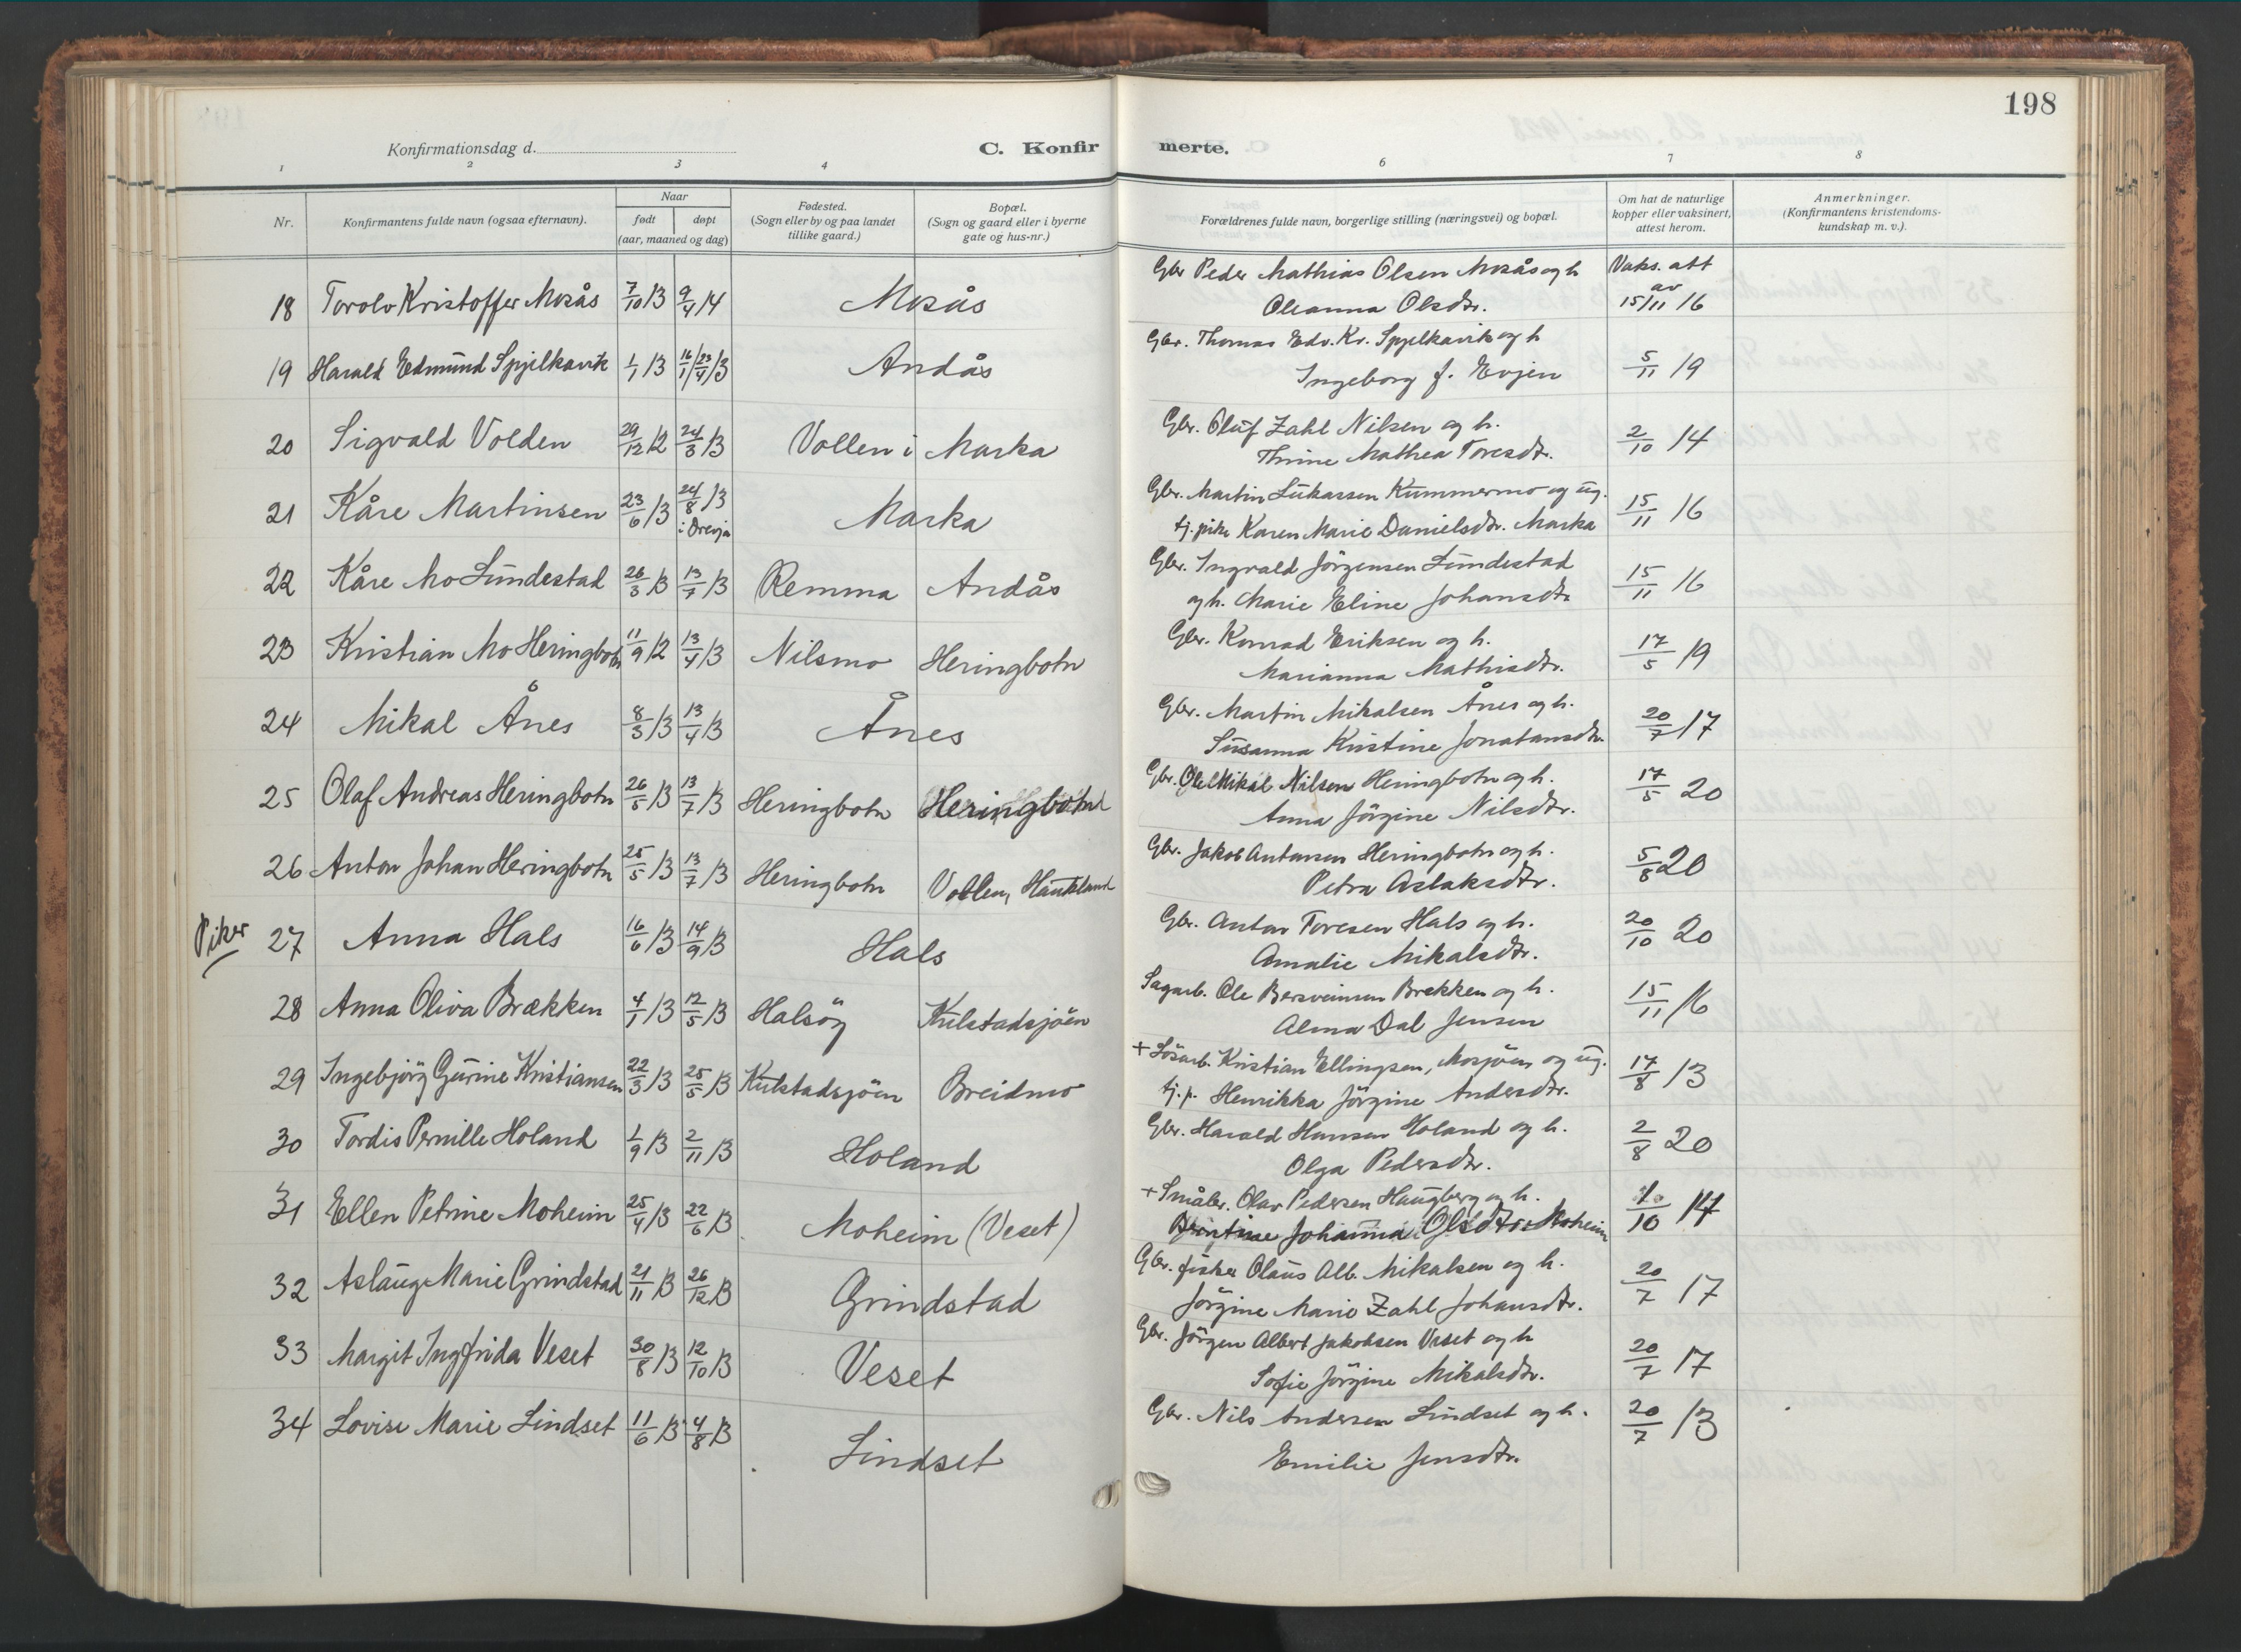 198
Konfirmationsdag d.
C. Konfirmerte.
1 2 3 4 6 7 8
Nr. Konfirmantens fulde navn (ogsaa efternavn). Naar født døpt (aar, maaned og dag) Fødested. (Sogn eller by og paa landet tillike gaard.) Bopæl. (Sogn og gaard eller i byerne gate og hus-nr.) Forældrenes fulde navn, borgerlige stilling (næringsvei) og bopæl. Om hat de naturlige kopper eller vaksinert, attest herom. Anmerkninger. (Konfirmantens kristendoms-kundskap m. v.).
18 Torolv Kristoffer Mosås 7/10 13 9/4 14 Mosås Gbr Peder Mathias Olsen Mosås og h. Oleanna Olsdtr. Vaks. att av 15/11 16
19 Harald Edmund Spjelkavik 1/1 13 16/1 / 23/4 13 Andås Gbr. Thomas Edv. Kr. Spjelkavik og h Ingeborg f. Evjen 5/11 19
20 Sigvald Volden 29/12 12 24/3 13 Vollen i Marka Gbr. Oluf Zahl Nilsen og h. Thrine Mathea Toresdtr. 2/10 14
21 Kåre Martinsen 23/6 13 24/8 13 i Drevja Marka Gbr. Martin Lukassen Kummermo og ug. tj. pike Karen Marie Danielsdtr. Marka 15/11 16
22 Kåre Mo Lundestad 26/3 13 13/7 13 Remma Andås Gbr. Ingvald Jörgensen Lundestad og h. Marie Eline Johansdtr 15/11 16
23 Kristian Mo Heringbotn 11/9 12 13/4 13 Nilsmo Heringbotn Gbr. Konrad Eriksen og h. Marianna Mathisdtr. 17/5 19
24 Mikal Ånes 8/3 13 13/4 13 Ånes Gbr. Martin Mikalsen Ånes og h. Susanna Kristine Jonatansdtr. 20/7 17
25 Olaf Andreas Heringbotn 26/5 13 13/7 13 Heringbotn Heringbotn Gbr. Ole Mikal Nilsen Heringbotn og h. Anna Jörgine Nilsdtr. 17/5 20
26 Anton Johan Heringbotn 25/5 13 13/7 13 Heringbotn Vollen, Haukland Gbr. Jakob Antonsen Heringbotn og h. Petra Aslaksdtr. 5/8 20
Piker 27 Anna Hals 16/6 13 14/9 13 Hals Gbr. Anton Toresen Hals og h. Amalie Mikalsdtr. 20/10 20
28 Anna Oliva Brækken 4/1 13 12/5 13 Halsöy Kulstadsjöen Sagarb. Ole Bersveinsen Brekken og h. Alma Dal Jensen 15/11 16
29 Ingebjörg Gurine Kristiansen 22/3 13 25/5 13 Kulstadsjöen Breidmo + Lösarb. Kristian Ellingsen, Mosjöen og ug. tj. p. Henrikka Jörgine Andersdtr. 17/8 13
30 Tordis Pernille Holand 1/9 13 2/11 13 Holand Gbr. Harald Hansen Holand og h. Olga Pedersdtr. 2/8 20
31 Ellen Petrine Moheim 25/4 13 22/6 13 Moheim (Veset) + Småbr. Olav Pedersen Haugberg og h. Berntine Johanna Olsdtr. Moheim 1/10 14
32 Aslaug Marie Grindstad 21/11 13 26/12 13 Grindstad Gbr. fisker Olaus Alb. Mikalsen og h. Jörgine Marie Zahl Johansdtr. 20/7 17
33 Margit Ingfrida Veset 30/8 13 12/10 13 Veset Gbr. Jörgen Albert Jakobsen Veset og h Sofie Jörgine Mikalsdtr. 20/7 17
34 Lovise Marie Lindset 11/6 13 4/8 13 Lindset Gbr. Nils Andersen Lindset og h. Emilie Jensdtr. 20/7 13